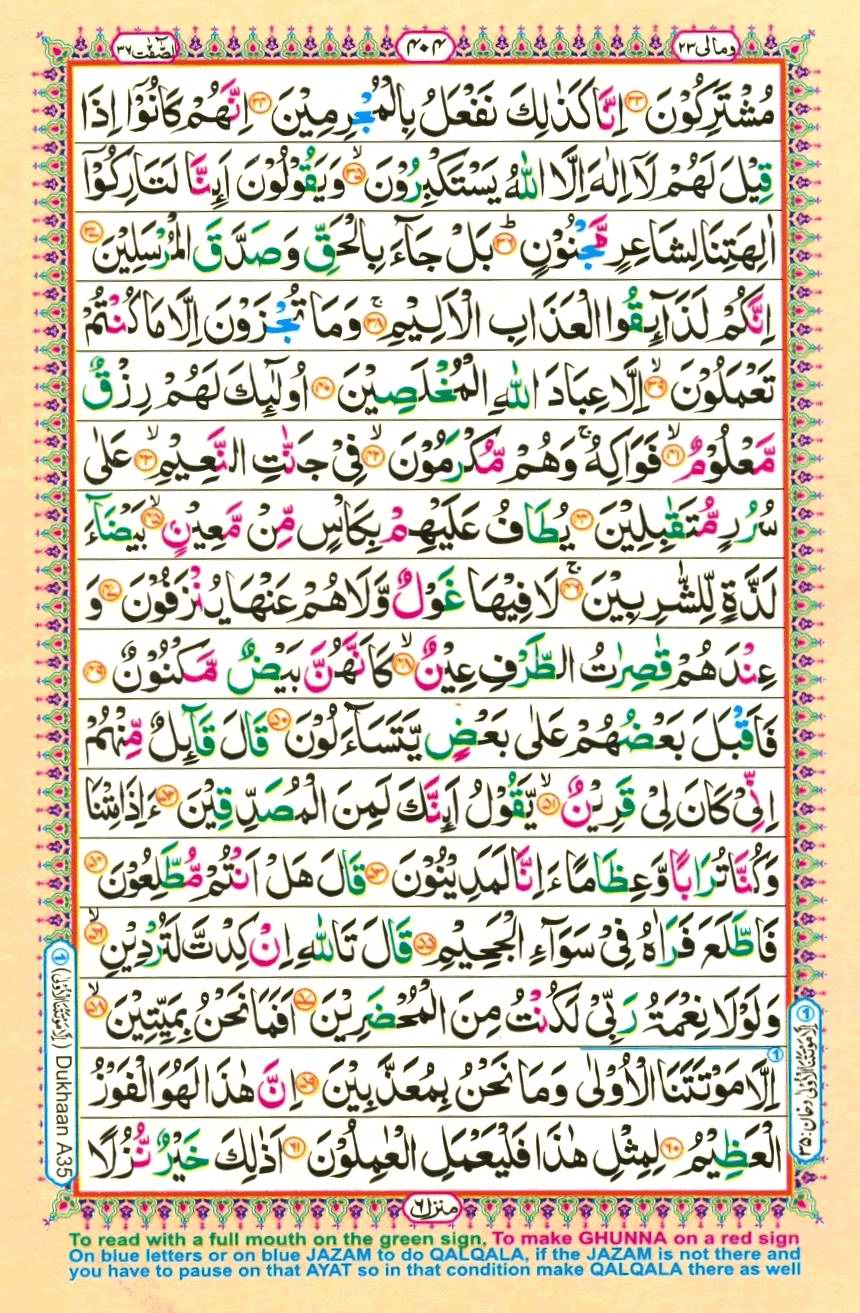 ومالی ۲۳
۴۰۴
الصّٰٓفّٰت ۳۷
مُشْتَرِكُوْنَ ﴿۳۳﴾ اِنَّا كَذٰلِكَ نَفْعَلُ بِالْمُجْرِمِیْنَ ﴿۳۴﴾ اِنَّهُمْ كَانُوْۤا اِذَا
قِیْلَ لَهُمْ لَاۤ اِلٰهَ اِلَّا اللّٰهُ یَسْتَكْبِرُوْنَ ﴿۳۵﴾ۙ وَیَقُوْلُوْنَ اَىِٕنَّا لَتَارِكُوْۤا
اٰلِهَتِنَا لِشَاعِرٍ مَّجْنُوْنٍ ﴿۳۶﴾ؕ بَلْ جَآءَ بِالْحَقِّ وَصَدَّقَ الْمُرْسَلِیْنَ ﴿۳۷﴾
اِنَّكُمْ لَذَآىِٕقُوا الْعَذَابِ الْاَلِیْمِ ﴿۳۸﴾ۚ وَمَا تُجْزَوْنَ اِلَّا مَا كُنْتُمْ
تَعْمَلُوْنَ ﴿۳۹﴾ۙ اِلَّا عِبَادَ اللّٰهِ الْمُخْلَصِیْنَ ﴿۴۰﴾ اُولٰٓىِٕكَ لَهُمْ رِزْقٌ
مَّعْلُوْمٌ ﴿۴۱﴾ۙ فَوَاكِهُ ۚ وَهُمْ مُّكْرَمُوْنَ ﴿۴۲﴾ۙ فِیْ جَنّٰتِ النَّعِیْمِ ﴿۴۳﴾ۙ عَلٰی
سُرُرٍ مُّتَقٰبِلِیْنَ ﴿۴۴﴾ یُطَافُ عَلَیْهِمْ بِكَاْسٍ مِّنْ مَّعِیْنٍۭ ﴿۴۵﴾ۙ بَیْضَآءَ
لَذَّةٍ لِّلشّٰرِبِیْنَ ﴿۴۶﴾ۚ لَا فِیْهَا غَوْلٌ وَّلَا هُمْ عَنْهَا یُنْزَفُوْنَ ﴿۴۷﴾ وَ
عِنْدَهُمْ قٰصِرٰتُ الطَّرْفِ عِیْنٌ ﴿۴۸﴾ۙ كَاَنَّهُنَّ بَیْضٌ مَّكْنُوْنٌ ﴿۴۹﴾
فَاَقْبَلَ بَعْضُهُمْ عَلٰی بَعْضٍ یَّتَسَآءَلُوْنَ ﴿۵۰﴾ قَالَ قَآىِٕلٌ مِّنْهُمْ
اِنِّیْ كَانَ لِیْ قَرِیْنٌ ﴿۵۱﴾ۙ یَّقُوْلُ اَىِٕنَّكَ لَمِنَ الْمُصَدِّقِیْنَ ﴿۵۲﴾ ءَاِذَا مِتْنَا
وَكُنَّا تُرَابًا وَّعِظَامًا ءَاِنَّا لَمَدِیْنُوْنَ ﴿۵۳﴾ قَالَ هَلْ اَنْتُمْ مُّطَّلِعُوْنَ ﴿۵۴﴾
فَاطَّلَعَ فَرَاٰهُ فِیْ سَوَآءِ الْجَحِیْمِ ﴿۵۵﴾ قَالَ تَاللّٰهِ اِنْ كِدْتَّ لَتُرْدِیْنِ ﴿۵۶﴾ۙ
وَلَوْلَا نِعْمَةُ رَبِّیْ لَكُنْتُ مِنَ الْمُحْضَرِیْنَ ﴿۵۷﴾ اَفَمَا نَحْنُ بِمَیِّتِیْنَ ﴿۵۸﴾ۙ
اِلَّا مَوْتَتَنَا الْاُوْلٰی وَمَا نَحْنُ بِمُعَذَّبِیْنَ ﴿۵۹﴾ اِنَّ هٰذَا لَهُوَ الْفَوْزُ
الْعَظِیْمُ ﴿۶۰﴾ لِمِثْلِ هٰذَا فَلْیَعْمَلِ الْعٰمِلُوْنَ ﴿۶۱﴾ اَذٰلِكَ خَیْرٌ نُّزُلًا
① (اِلَّا مَوْتَتُنَا الْاُوْلٰی) Dukhaan A35
① اِلَّا مَوْتَتُنَا الْاُوْلٰی دخان: ۳۵
منزل ۶
To read with a full mouth on the green sign, To make GHUNNA on a red sign
On blue letters or on blue JAZAM to do QALQALA, if the JAZAM is not there and
you have to pause on that AYAT so in that condition make QALQALA there as well